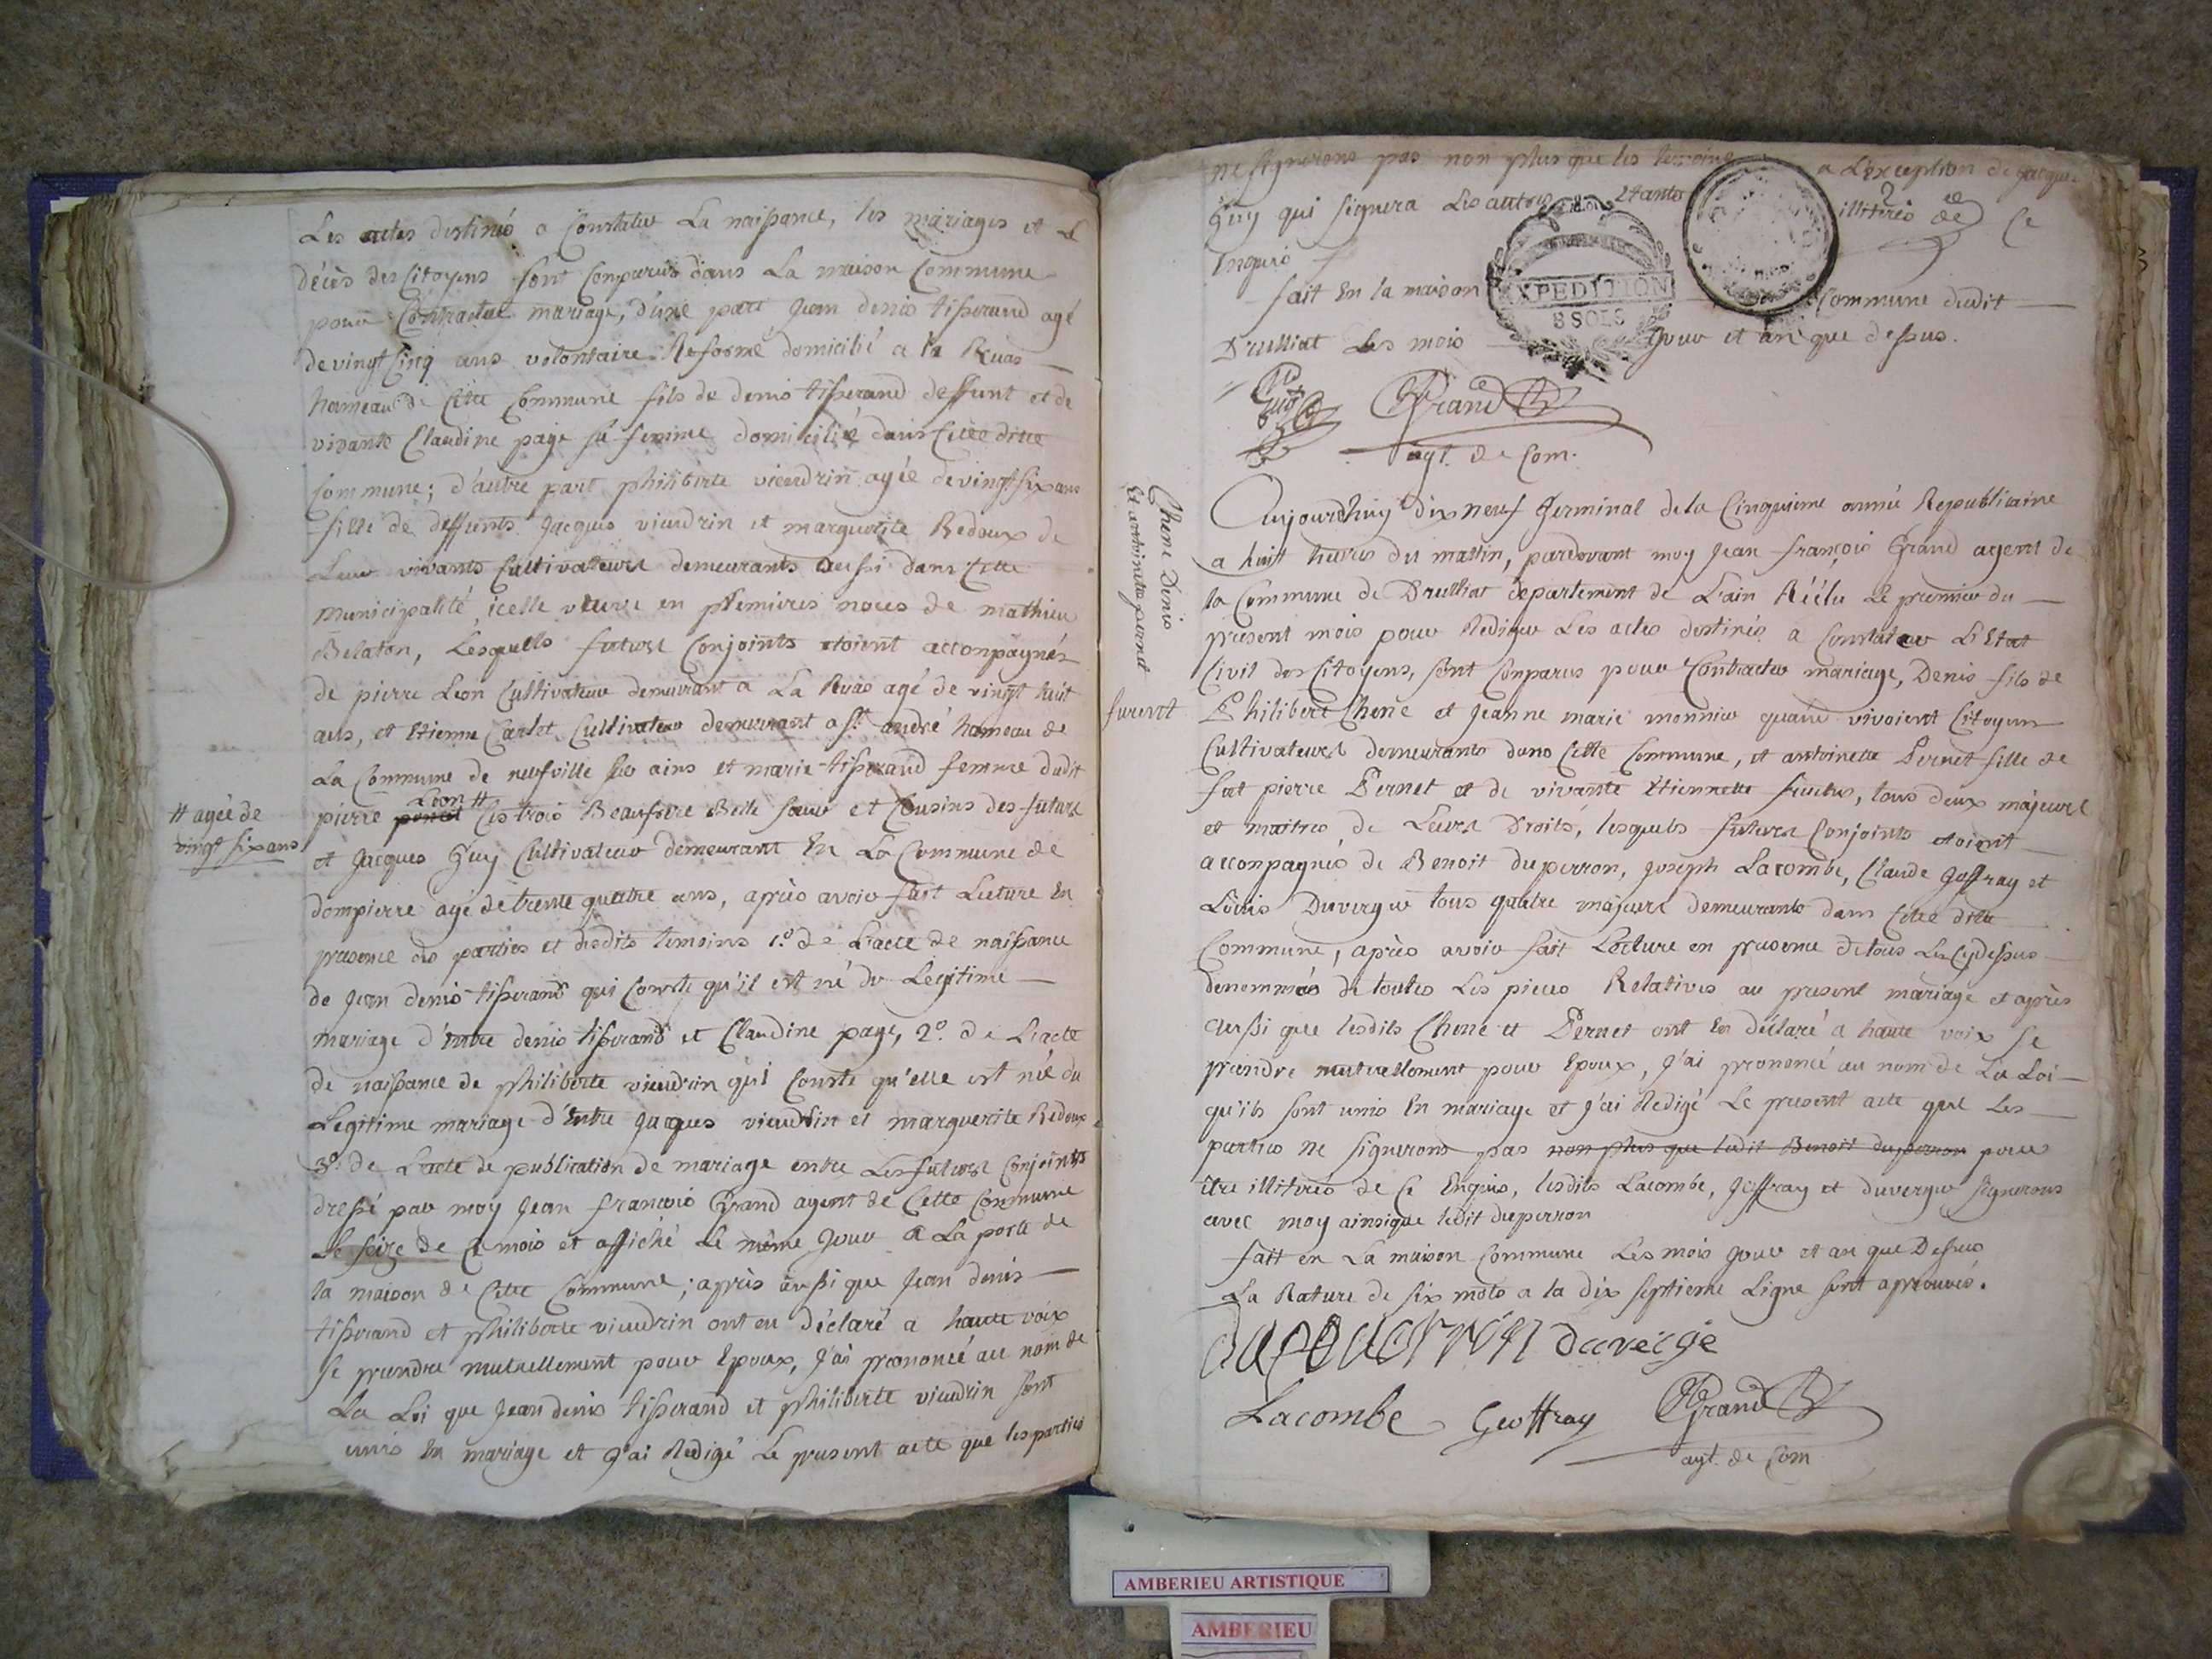 Les actes destinés a Constater La naissance, les mariages et Le
décès des Citoyens sont Comparus dans La maison Commune
pour Contracter mariage, d'une part Jean denis tisserand agé
de vingt Cinq ans volontaire Reformé domicilié a la Ruas
hameau de Cette Commune fils de denis tisserand deffunt et de
vivante Claudine page sa femme domiciliée dans Cette ditte
Commune; d'autre part philiberte vieudrin agée de vingt six ans
fille de deffunts Jacques vieudrin et marguerite Redoux de
Leur vivants Cultivateurs demeurants aussi dans Cette
municipalité, icelle veuve en premieres noces de mathieu
Belaton, Lesquells futurs Conjoints etoient acconpagnés
de pierre Leon Cultivateur demeurant a La Ruas agé de vingt huit
ans, et Etienne Carlet Cultivateur demeurant a St. andré hameau de
La Commune de neufville sur ains et marie tisserand femme dudit
Leon #
pierre Les trois Beaufrere Belle soeur et Cousins des futurs
# agée de
vingt six ans
et Jacques Guy Cultivateur demeurant En La Commune de
dompierre agé de trente quatre ans, après avoir fait Lecture En
presence des parties et desdits temoins 1.° de L'acte de naissance
de Jean denis tisserand qui Conste qu'il est né du Legitime
mariage d'entre denis tisserand et Claudine page, 2.° de L'acte
de naissance de philiberte vieudrin qui Conste qu'elle est née du
Legitime mariage d'Entre Jacques vieudrin et marguerite Redoux
3.° de L'acte de publication de mariage entre Les futurs Conjoints
dressé par moy Jean francois Grand agent de Cette Commune
Le seize de Ce mois et affiché Le même Jour a La porte de
la maison de Cette Commune; après aussi que Jean denis
tisserand et philiberte vieudrin ont eu déclaré a haute voix
se prendre mutuellement pour Epoux, J'ai prononcé au nom de
La Loi que Jean denis tisserand et philiberte vieudrin sont
unis En mariage et J'ai Redigé Le present acte que les parties
ne signerons pas non plus que les temoins a L'exception de Jacques
Guy qui signera Les autres Etants illiterés de Ce
Enquis
fait En la maison Commune dudit
Drulliat Les mois Jour et an que dessus.
EXPEDITION
8 SOLS
Grand
agt. de Com.
Chene Denis
Et antoinette pernet
Aujourdhuy dix neuf Germinal de la Cinquieme année Republicaine
a huit heures du mattin, pardevant moy Jean françois Grand agent de
la Commune de Drulliat département de L'ain Réélu Le premier du
present mois pour Rediger Les actes destinés a Constater L'Etat
Civil des Citoyens, sont Conparus pour Contracter mariage, Denis fils de
furent
Philibert Chene et Jeanne marie monnier quand vivoient Citoyens
Cultivateurs demeurants dans Cette Commune, et antoinette Pernet fille de
fut pierre Pernet et de vivante Etiennette tous deux majeurs
et maitres de Leurs Droits, lesquels futurs Conjoints etoient
acconpagnés de Benoit duperron, Joseph Lacombe, Claude Joffray et
Louis Duvergie tous quatre majeurs demeurants dans Cette ditte
Commune, après avoir fait Lecture en presence de tous Les Cydessus
denommés de toutes Les pieces Relatives au present mariage et après
aussi que lesdits Chene et Pernet ont Eu déclaré a haute voix se
prendre mutuellement pour Epoux, J'ai prononcé au nom de La Loi
qu'ils sont unis En mariage et J'ai Redigé Le present acte que Les
parties ne signerons pas non plus que ledit Benoit duperron pour
être illiterés de Ce Enquis, lesdits Lacombe, Joffray et duvergie signerons
avec moy ainsi que ledit duperron
fait en La maison Commune Les mois Jour et an que Dessus
La Rature de six mots a la dix septieme Ligne sont aprouvés.
duveige
Lacombe Geoffray Grand
agt. de Com
AMBERIEU ARTISTIQUE
AMBERIEU